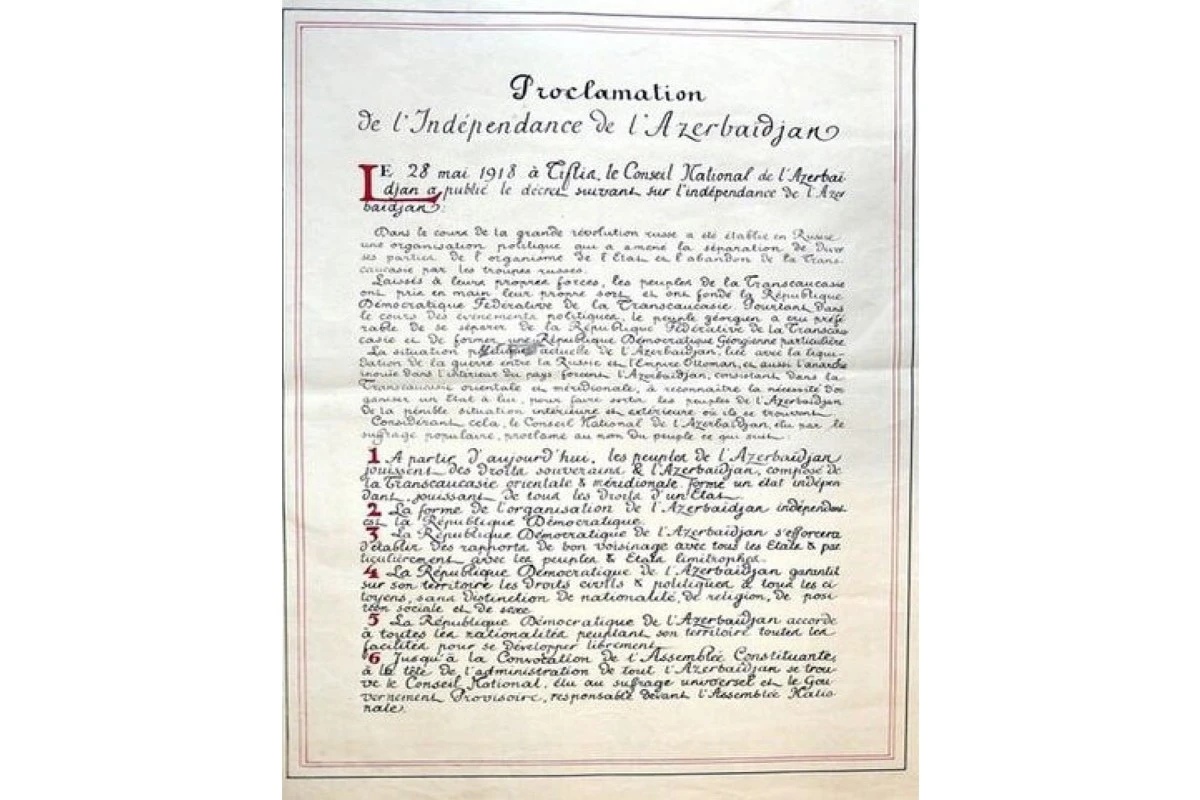 Proclamation
de l'Indépendance de l'Azerbaïdjan
LE 28 mai 1918 à Tiflis, le Conseil National de l'Azerbaï
djan a publié le décret suivant sur l'indépendance de l'Azer
baïdjan:
Dans le cours de la grande révolution russe a été établie en Russie
une organisation politique qui a amené la séparation de diver
ses parties de l'organisme de l'Etat et l'abandon de la Trans-
caucasie par les troupes russes.
Laissés à leurs propres forces, les peuples de la Transcaucasie
ont pris en main leur propre sort et ont fondé la République
Démocratique Fédérative de la Transcaucasie. Pourtant dans
le cours des événements politiques, le peuple géorgien a cru préfé
rable de se séparer de la République Fédérative de la Transcau
casie et de former une République Démocratique Géorgienne particulière.
La situation politique actuelle de l'Azerbaïdjan, liée avec la liqui-
dation de la guerre entre la Russie et l'Empire Ottoman, et aussi l'anarchie
inouïe dans l'intérieur du pays forcent l'Azerbaïdjan, consistant dans la
Transcaucasie orientale et méridionale, à reconnaître la nécessité d'or
ganiser un Etat à lui, pour faire sortir les peuples de l'Azerbaïdjan
de la pénible situation intérieure et extérieure où ils se trouvent.
Considérant cela, le Conseil National de l'Azerbaïdjan, élu par le
suffrage populaire, proclame au nom du peuple ce qui suit:
1 A partir d'aujourd'hui, les peuples de l'Azerbaïdjan
jouissent des droits souverains & l'Azerbaïdjan, composé de
la Transcaucasie orientale & méridionale forme un état indépen
dant, jouissant de tous les droits d'un Etat.
2 La forme de l'organisation de l'Azerbaïdjan indépendant
est la République Démocratique.
3 La République Démocratique de l'Azerbaïdjan s'efforcera
d'établir des rapports de bon voisinage avec tous les Etats & par
ticulièrement avec les peuples & Etats limitrophes.
4 La République Démocratique de l'Azerbaïdjan garantit
sur son territoire les droits civils & politiques à tous les ci
toyens, sans distinction de nationalité, de religion, de posi
tion sociale et de sexe
5 La République Démocratique de l'Azerbaïdjan accorde
à toutes les nationalités peuplant son territoire toutes les
facilités pour se développer librement
6 Jusqu'à la Convocation de l'Assemblée Constituante,
à la tête de l'administration de tout l'Azerbaïdjan se trou
ve le Conseil National, élu au suffrage universel et le Gou
vernement Provisoire, responsable devant l'Assemblée Natio
nale.